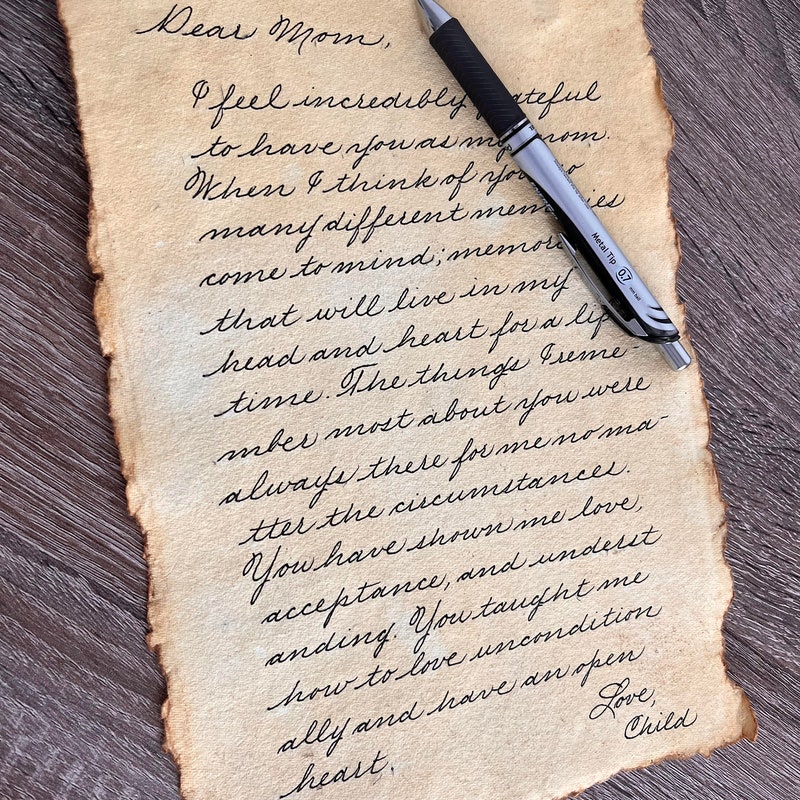 Dear Mom,
I feel incredibly grateful
to have you as my mom.
When I think of you so
many different memories
come to mind; memor
that will live in my
head and heart for a lif
time. The things I reme-
mber most about you were
always there for me no ma-
tter the circumstances.
You have shown me love,
acceptance, and underst
anding. You taught me
how to love uncondition
ally and have an open
heart.
Love,
Child
Metal Tip 0.7